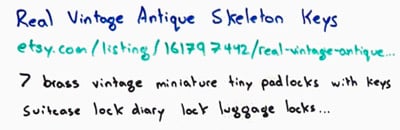 Real Vintage Antique Skeleton Keys
etsy.com/listing/161797442/real-vintage-antique...
7 brass vintage miniature tiny padlocks with keys
suitcase lock diary lock luggage locks...